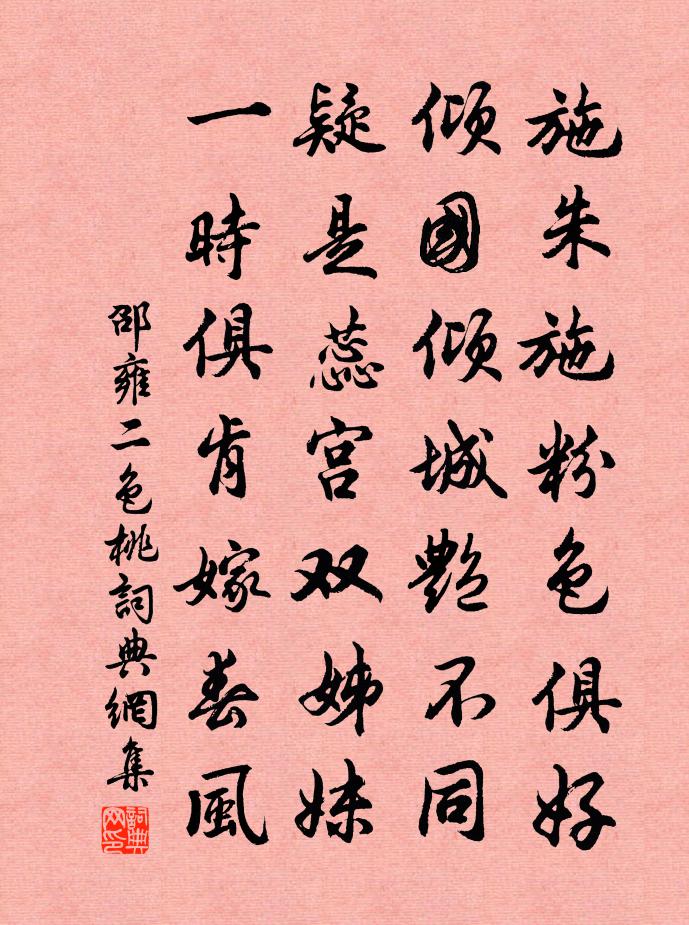 施朱施粉色俱好
傾國傾城艷不同
疑是蕊宮双姊妹
一時俱肯嫁春風
邵雍二色桃詞典網集
詞典网印